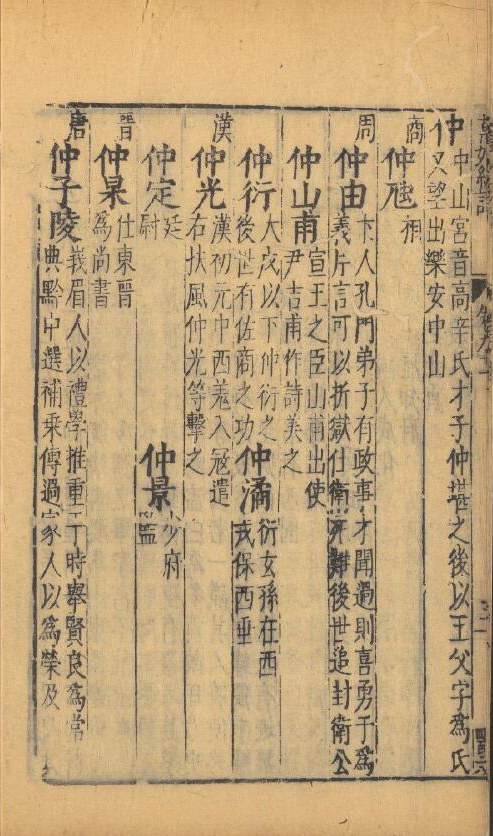 仲
中山宮音高辛氏才子仲堪之後以王父字為氏
又望出樂安中山
商
仲虺
相
周
仲由
卞人孔門弟子有政事才聞過則喜勇于為
義片言可以折獄仕衛死難後世追封衛公
仲山甫
宣王之臣山甫出使
尹吉甫作詩美之
仲衍
大戊以下仲衍之
後世有佐商之功
仲潏
衍玄孫在西
戎保西垂
漢
仲光
漢初元中西羌入寇遣
右扶風仲光等擊之
仲定
廷
尉
仲景
少府
監
晉
仲杲
仕東晉
為尚書
唐
仲子陵
峩眉人以禮學推重于時舉賢良為常
典黔中選補乘傳過家人以為榮及